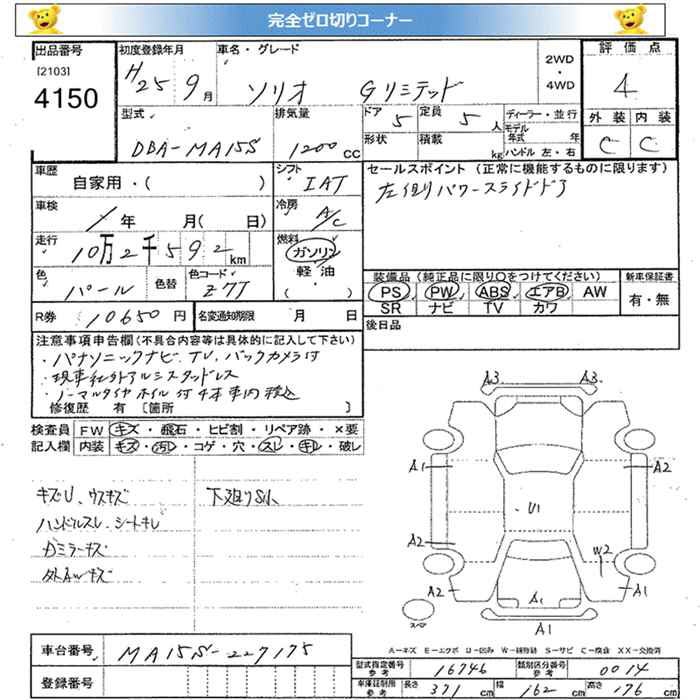 完全ゼロ切りコーナー
出品番号 初度登録年月 車名・グレード 2WD・4WD 評価点
[2103]
4150
H25 9月 ソリオ Gリミテッド 4
型式 排気量 ドア 5 定員 5人 ディーラー・並行 外装 内装
DBA-MA15S 1200cc 形状 積載 kg モデル年式 年 C C
ハンドル 左・右
車歴 自家用・( ) シフト IAT セールスポイント(正常に機能するものに限ります)
左側パワースライドドア
車検 年 月( 日) 冷房 A/C
走行 10万2千592km 燃料 ガソリン
軽油
( )
色 パール 色替 色コード Z7T
装備品(純正品に限り○をつけてください) 新車保証書
PS PW ABS エアB AW 有・無
SR ナビ TV カワ
R券 10650円 名変通知期限 月 日 後日品
注意事項申告欄(不具合内容等は具体的に記入して下さい)
・パナソニックナビ TV、バックカメラ付
・現車社外アルミスタッドレス
・ノーマルタイヤホイル付4本車内積込
修復歴 有 [箇所 ]
検査員 FW キズ・飛石・ヒビ割・リペア跡・×要
記入欄 内装 キズ・汚レ・コゲ・穴・スレ・キレ・破レ
キズU、ウスキズ 下廻りS小
ハンドルスレ、シートキレ
Dミラーキズ
外AWキズ
A3 A3
A1 A2
U1
A2 W2
A2 A1 A1
スペア A1
A−キズ E−エクボ U−凹み W−補修跡 S−サビ C−腐食 XX−交換済
車台番号 MA15S-227175
登録番号
型式指定番号参考 16746 類別区分番号参考 0014
車庫証明用参考 長さ 371cm 幅 162cm 高さ 176cm